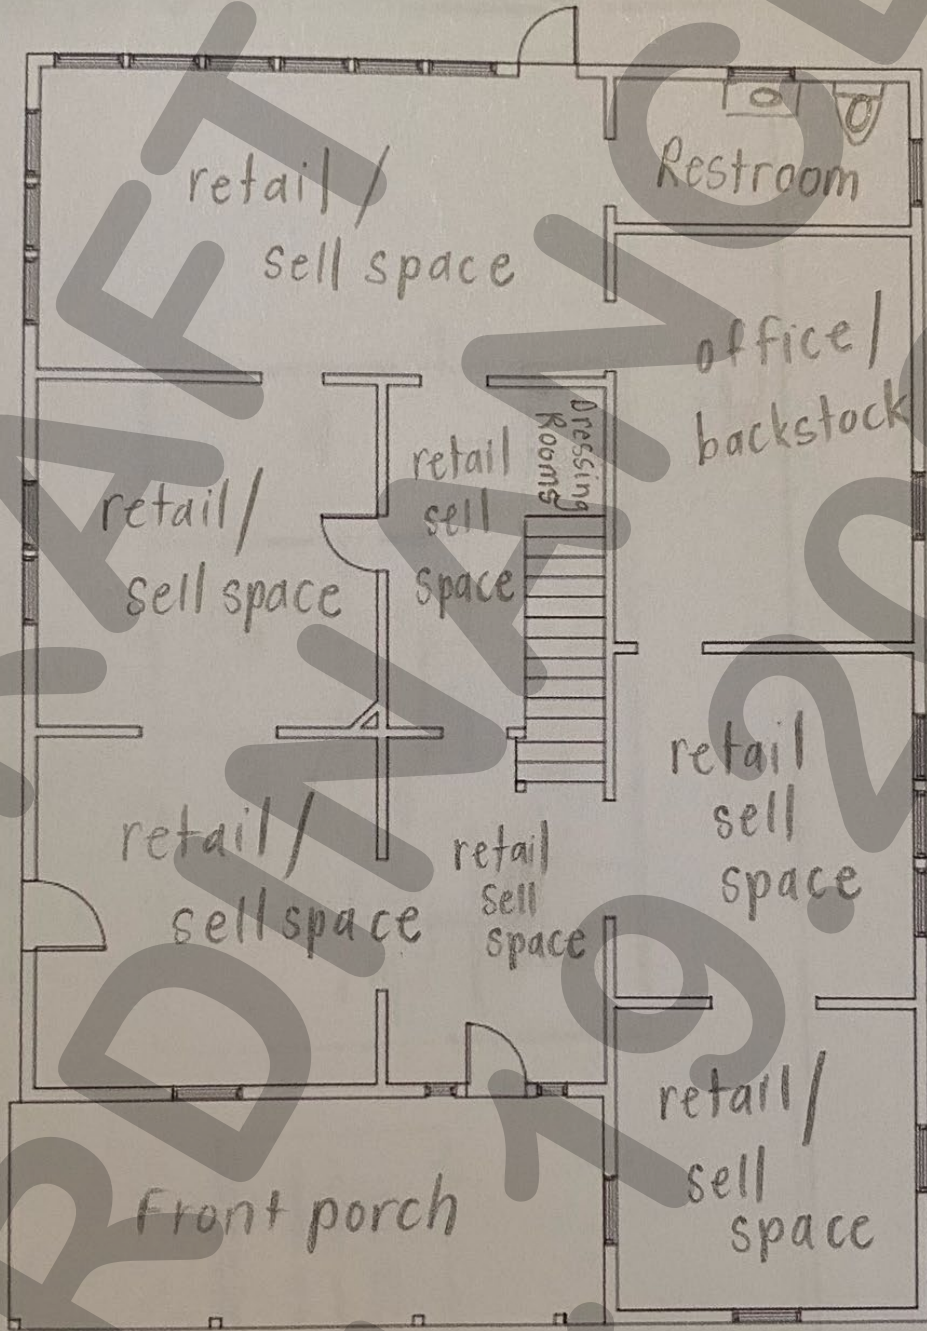 retail/
sell space
Restroom
office/
backstock
Dressing
Rooms
retail
sell
space
retail/
sell space
retail
sell
space
retail/
sell space
retail
sell
space
retail/
sell
space
Front porch